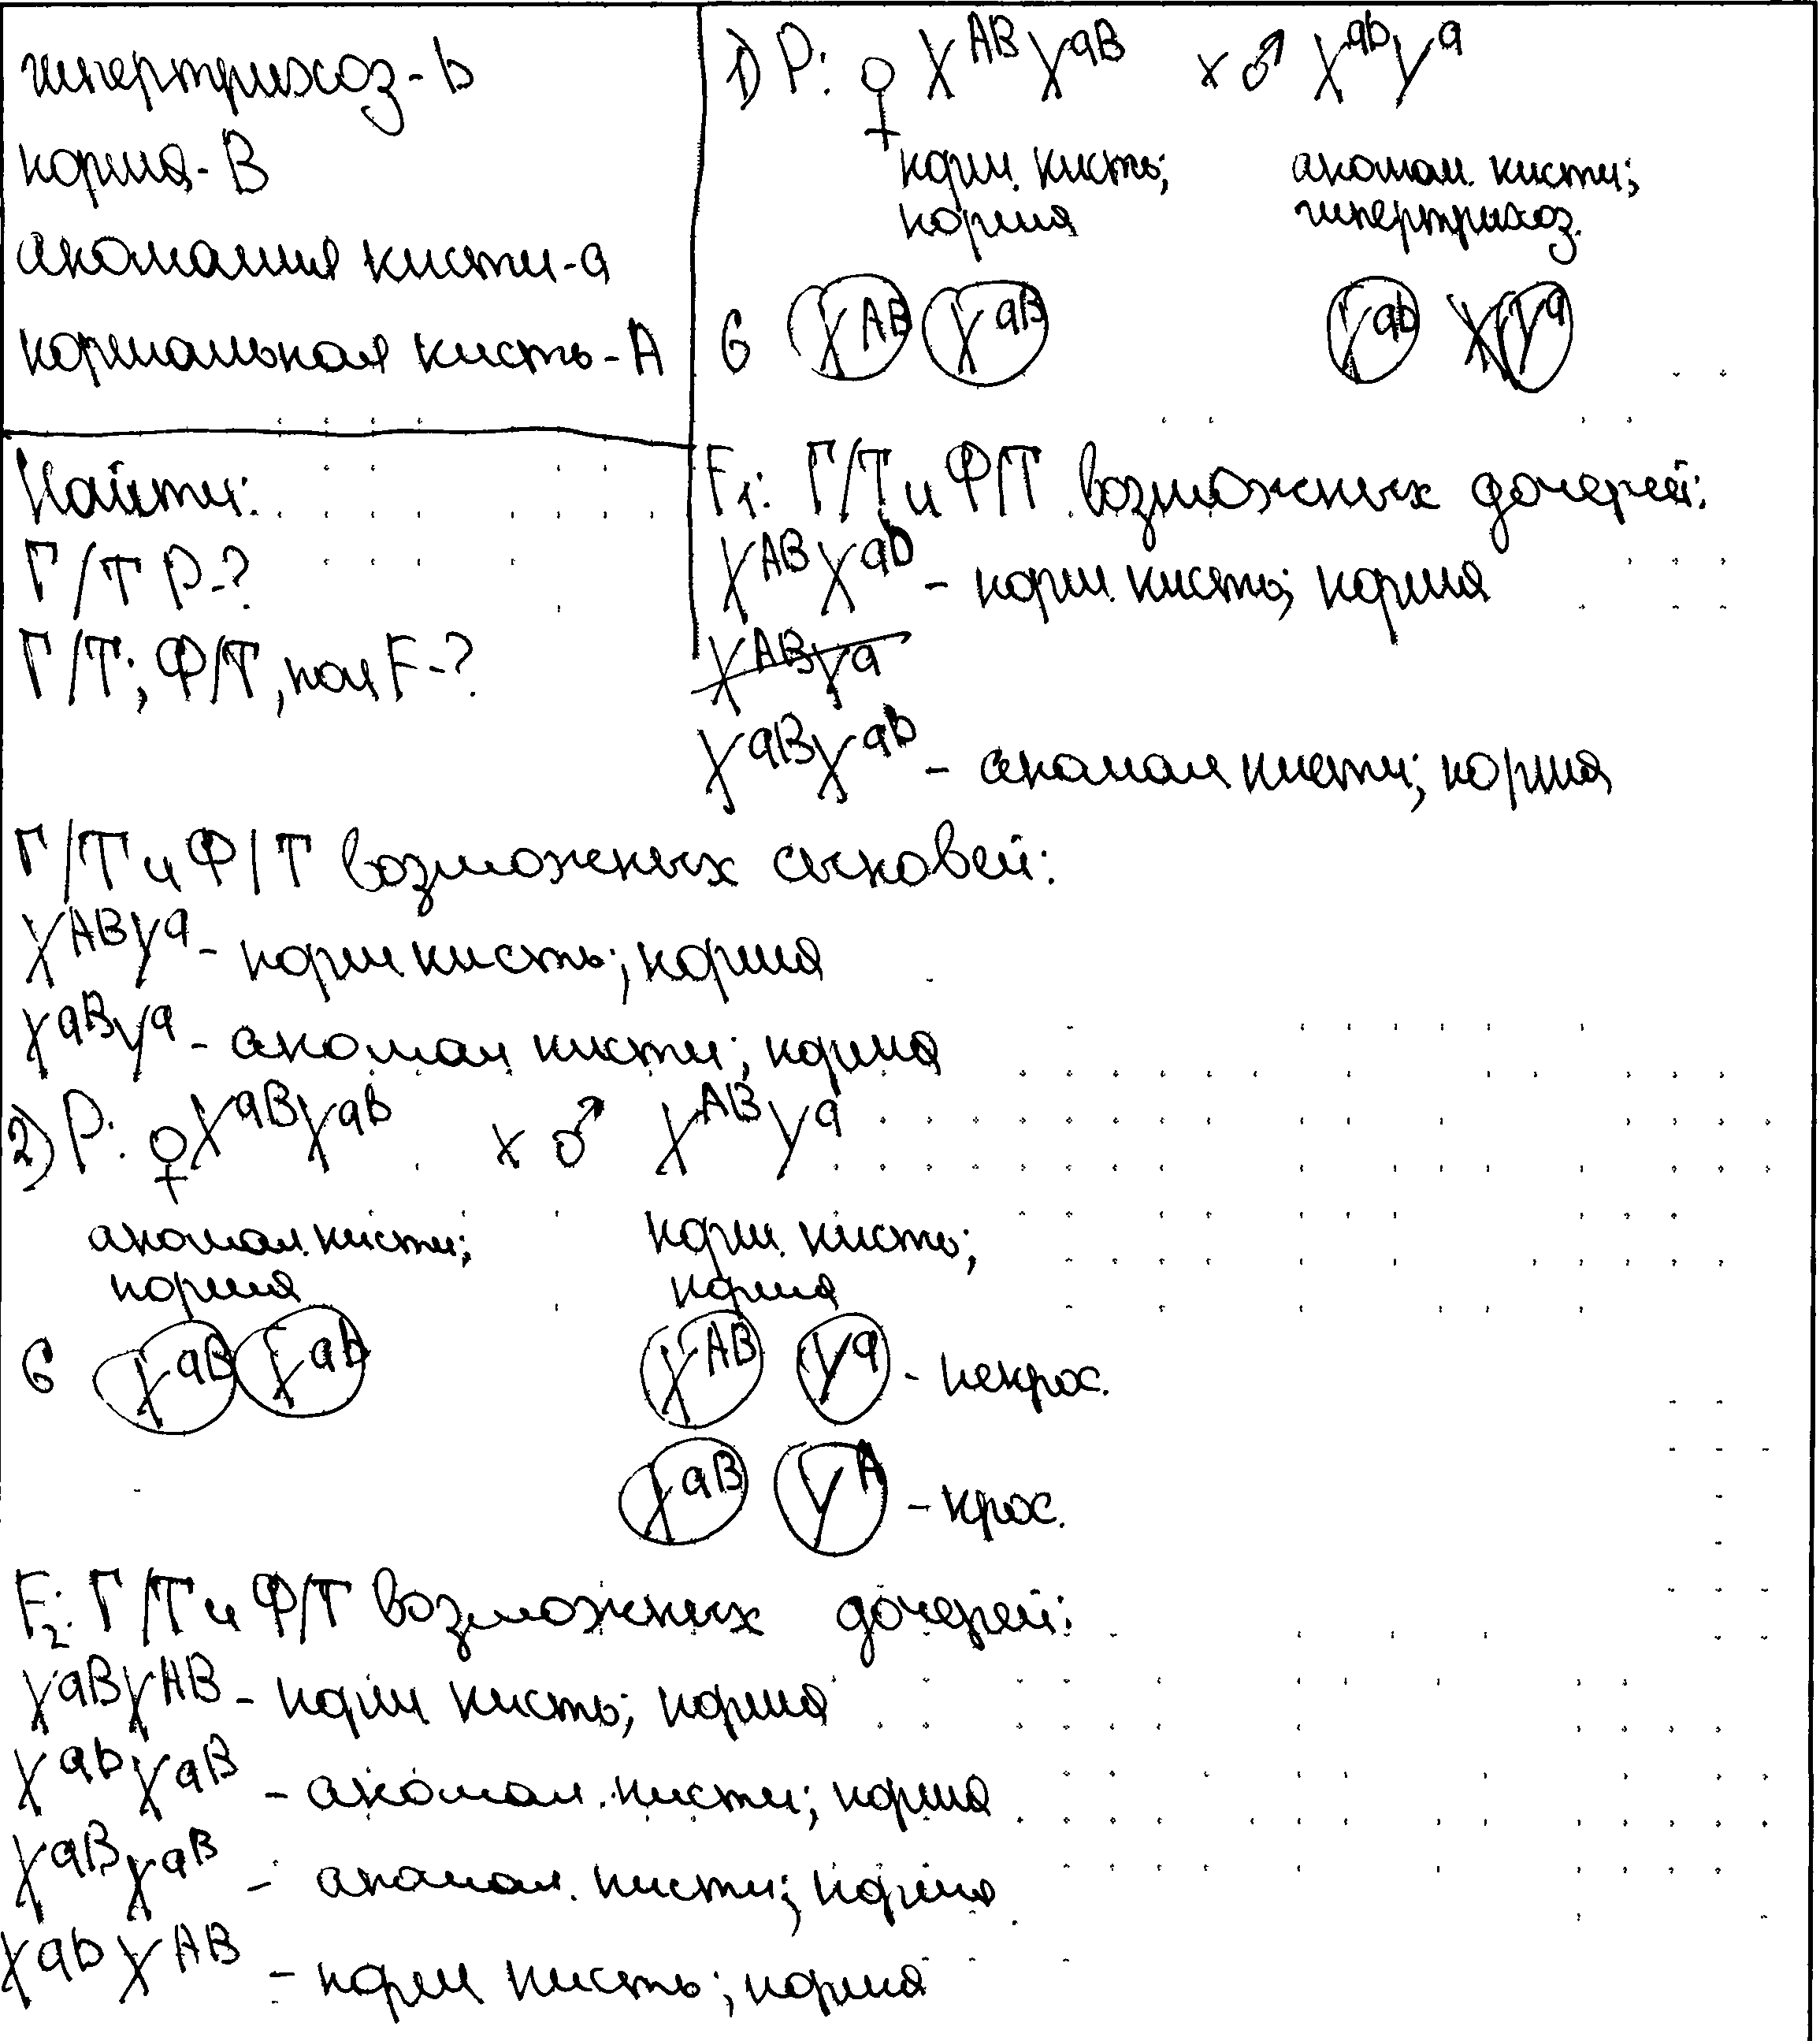 гипертрихоз - b
норма - B
аномалия кисти - a
нормальная кисть - A
Найти:
Г/Т P - ?
Г/Т; Ф/Т, пол F - ?
1) P: ♀ X^AB X^aB x ♂ X^ab Y^a
норм. кисть; аномал. кисти;
норма гипертрихоз.
G X^AB X^aB X^ab Y^a
F1: Г/Т и Ф/Т возможных дочерей:
X^AB X^ab - норм. кисть; норма
X^AB Y^a
X^aB X^ab - аномал кисти; норма
Г/Т и Ф/Т возможных сыновей:
X^AB Y^a - норм кисть; норма
X^aB Y^a - аномал кисти; норма
2) P: ♀ X^aB X^ab x ♂ X^AB Y^a
аномал. кисти; норм. кисть;
норма норма
G X^aB X^ab X^AB Y^a - некрос.
X^aB Y^A - крос.
F2: Г/Т и Ф/Т возможных дочерей:
X^aB X^AB - норм кисть; норма
X^ab X^aB - аномал. кисти; норма
X^aB X^aB - аномал. кисти; норма
X^ab X^AB - норм кисть; норма